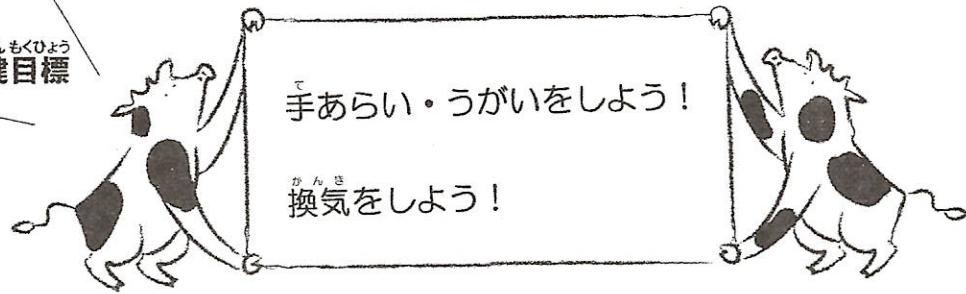 目標
手あらい・うがいをしよう！
換気をしよう！